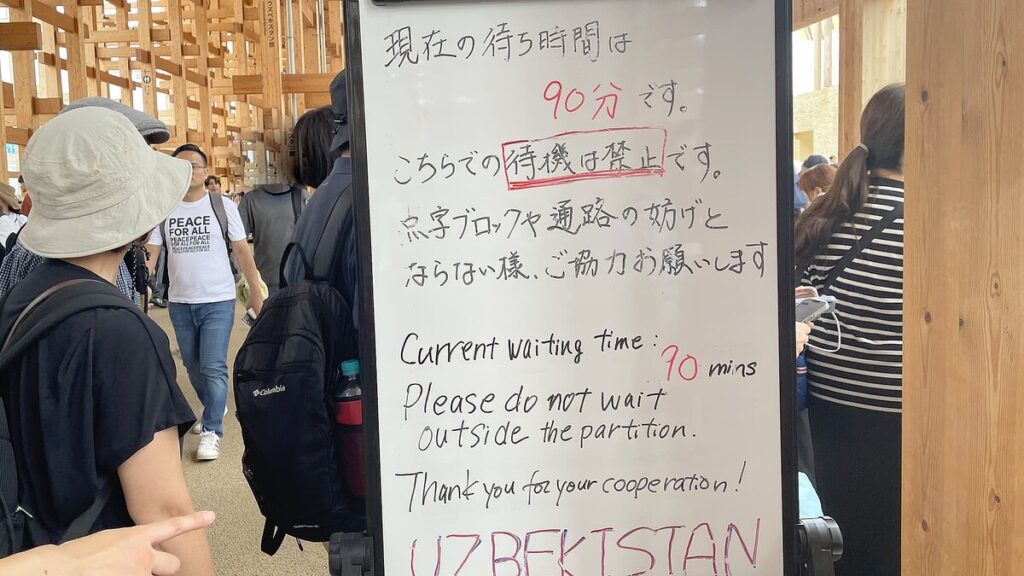 現在の待ち時間は
90分です。
こちらでの待機は禁止です。
点字ブロックや通路の妨げと
ならない様、ご協力お願いします
Current waiting time:
90 mins
Please do not wait
outside the partition.
Thank you for your cooperation!
UZBEKISTAN
PEACE
FOR ALL
PEACEPEACE
FOR ALLFOR ALL
Columbia
ウズベキスタン館